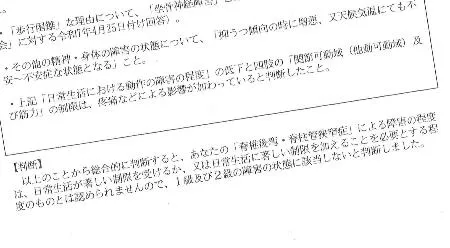 ・「歩行困難」な理由について、「坐骨神経障害」
会」に対する令和7年4月25日付け回答)。
・その他の精神・身体の障害の状態について、「抑うつ傾向の時に悶悪、又天候気温にても不
安～不安症な状態となる」こと。
・上記「日常生活における動作の障害の程度」の低下と四肢の「関節可動域(他動可動域)及
び筋力」の制限は、疼痛などによる影響が加わっていると判断したこと。
【判断】
以上のことから総合的に判断すると、あなたの「脊椎後弯・脊柱管狭窄症」による障害の程度
は、日常生活が著しい制限を受けるか、又は日常生活に著しい制限を加えることを必要とする程
度のものとは認められませんので、1級及び2級の障害の状態に該当しないと判断しました。